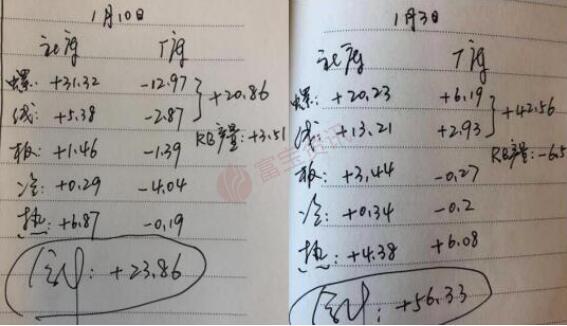 1月10日
社库 厂库
螺: +31.32 -12.97
+20.86
线: +5.38 -2.87
RB产量: +3.51
板: +1.46 -1.39
冷: +0.29 -4.04
热: +6.87 -0.19
合计: +23.86
1月3日
社库 厂库
螺: +20.23 +6.19
+42.56
线: +13.21 +2.93
RB产量: -6.5
板: +3.44 -0.27
冷: +0.34 -0.2
热: +4.38 +6.08
合计: +56.33
富宝资讯